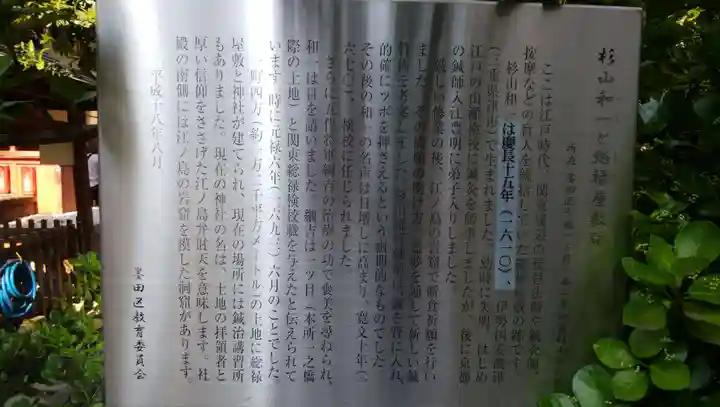 杉山和一と惣禄屋敷跡
ここは江戸時代、関東
按摩などの盲人を統括していた
杉山和一は慶長十五年(一六一〇)、伊勢国安濃津
(三重県津市)で生まれました。幼時に失明、はじめ
江戸の山瀬検校に鍼灸を師事しましたが、後に京都
の鍼師入江豊明に弟子入りしました。
厳しい修業の後、江ノ島の岩窟で断食祈願を行い
ました。その満願の明け方、霊夢を通して新しい鍼
管に入れ、
的確にツボを押さえるという画期的なものでした。
その後の和一の名声は日増しに高まり、寛文十年(一
六七〇)、検校に任じられました。
さらに五代将軍綱吉の治療の功で褒美を尋ねられ、
和一は目を請いました。綱吉は一ツ目(本所一之橋
際の土地)と関東総禄検校職を与えたと伝えられて
います。時に元禄六年(一六九三)六月のことでした。
一町四方(約一万二千平方メートル)の土地に総禄
屋敷と神社が建てられ、現在の場所には鍼治講習所
もありました。現在の神社の名は、土地の拝領者と
厚い信仰をささげた江ノ島弁財天を意味します。社
殿の南側には江ノ島の岩窟を模した洞窟があります。
平成十八年八月
墨田区教育委員会